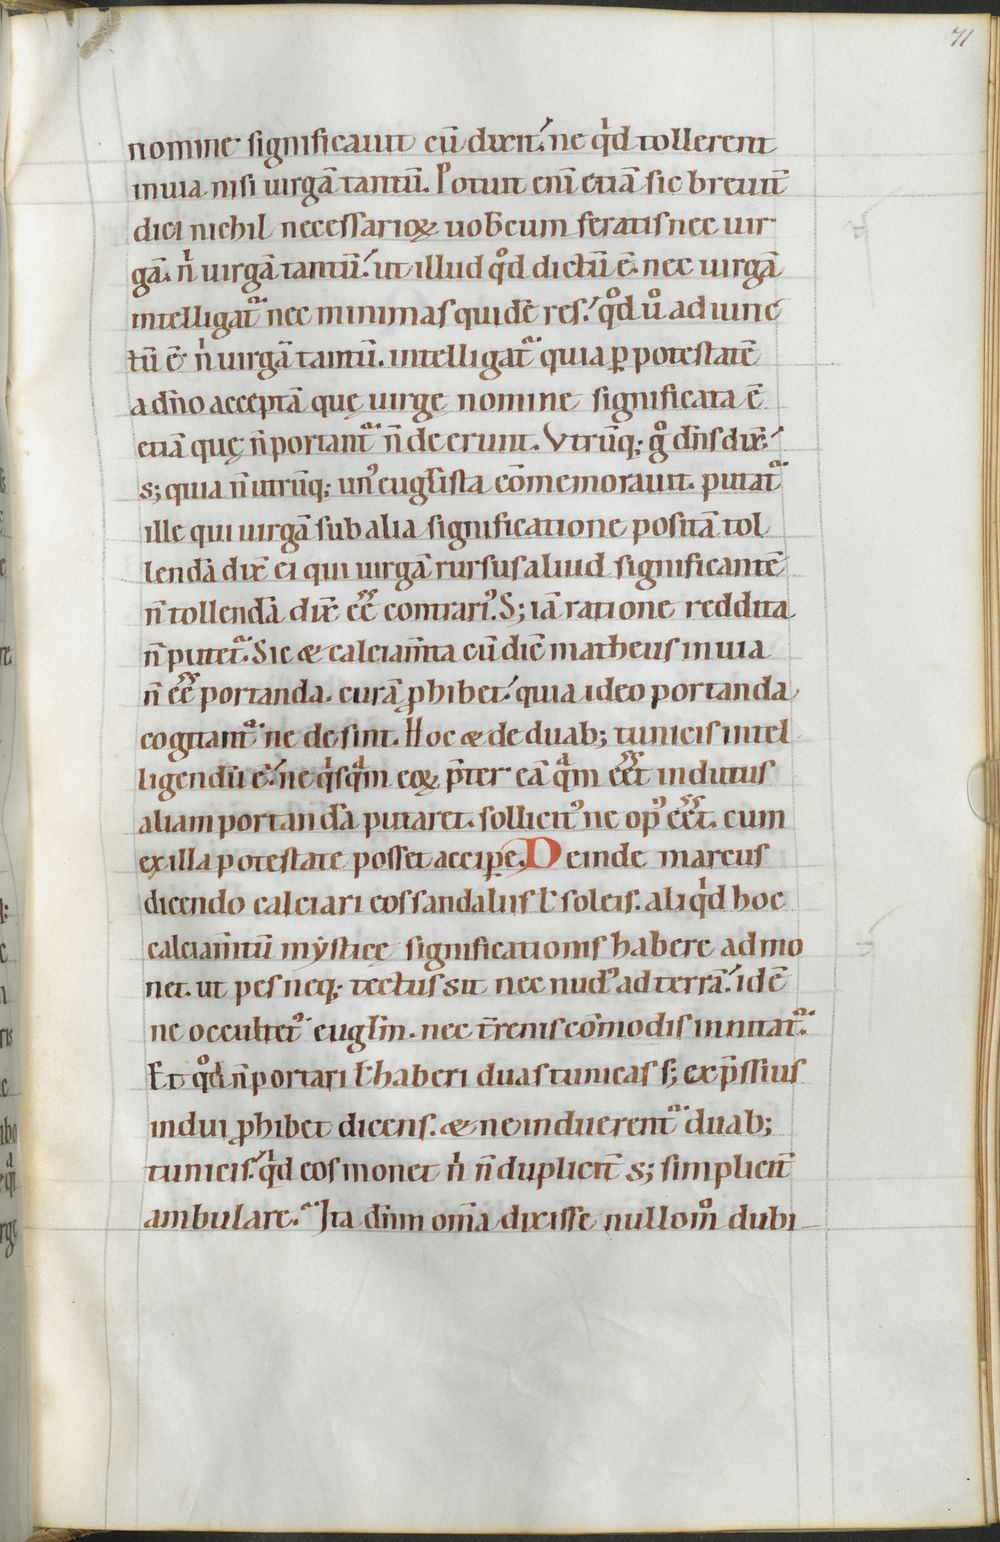 71
nomine significauit cū dixit. ne qͥd tollerent
in uia nisi uirgā tantū. Potuit eni̅ etiā sic breuit̅
dici nichil necessarioꝝ uob̅cum feratis nec uir
gā. nͥ uirgā tantū. ut illud qͦd dictū ē. nec uirgā
intelligat᷑ nec minimas quidē res. qͦd uͦ adiunc
tū ē nͥ uirgā tantū. intelligat᷑ quia ꝑ potestatē
a dn̅o acceptā quę uirgę nomine significata ē
etiā quę n̅ portant᷑ n̅ deerunt. Vtrūq; gͦ dn̅s dix̅.
s; quia n̅ utrūq; unꝰ eugl̅ista cōmemorauit. putat᷑
ille qui uirgā sub alia significatione positā tol
lendā dix̅ ei qui uirgā rursus aliud significantē
n̅ tollendā dix̅ ee̅ contrariꝰ. S; iā ratione reddita
n̅ putet᷑. Sic & calciam̅ta cū dic̅ matheus in uia
n̅ ee̅ portanda. curā ꝓhibet. quia ideo portanda
cogitant᷑ ne desint. Hoc & de duab; tunicis intel
ligendū ē. ne qͥsqͣm eoꝝ p̅ter eā qͣm ee̅t indutus
aliam portandā putaret. sollicitꝰ ne opꝰ ee̅t. cum
ex illa potestate posset accipe̅. Deinde marcus
dicendo calciari eos sandaliis ł soleis. aliqͥd hoc
calciam̅tū mẏsticę significationis habere admo
net. ut pes neq; tectus sit nec nudꝰ ad terrā. id ē
ne occultet᷑ eugl̅m. nec t̅renis cōmodis innitat᷑.
Et qͦd n̅ portari ł haberi duas tunicas s; exp̅ssius
indui ꝓhibet dicens. & ne induerent᷑ duab;
tunicis. qͥd eos monet nͥ n̅ duplicit̅ s; simplicit̅
ambulare. Ita dn̅m om̅a dixisse nullomͦ dubi